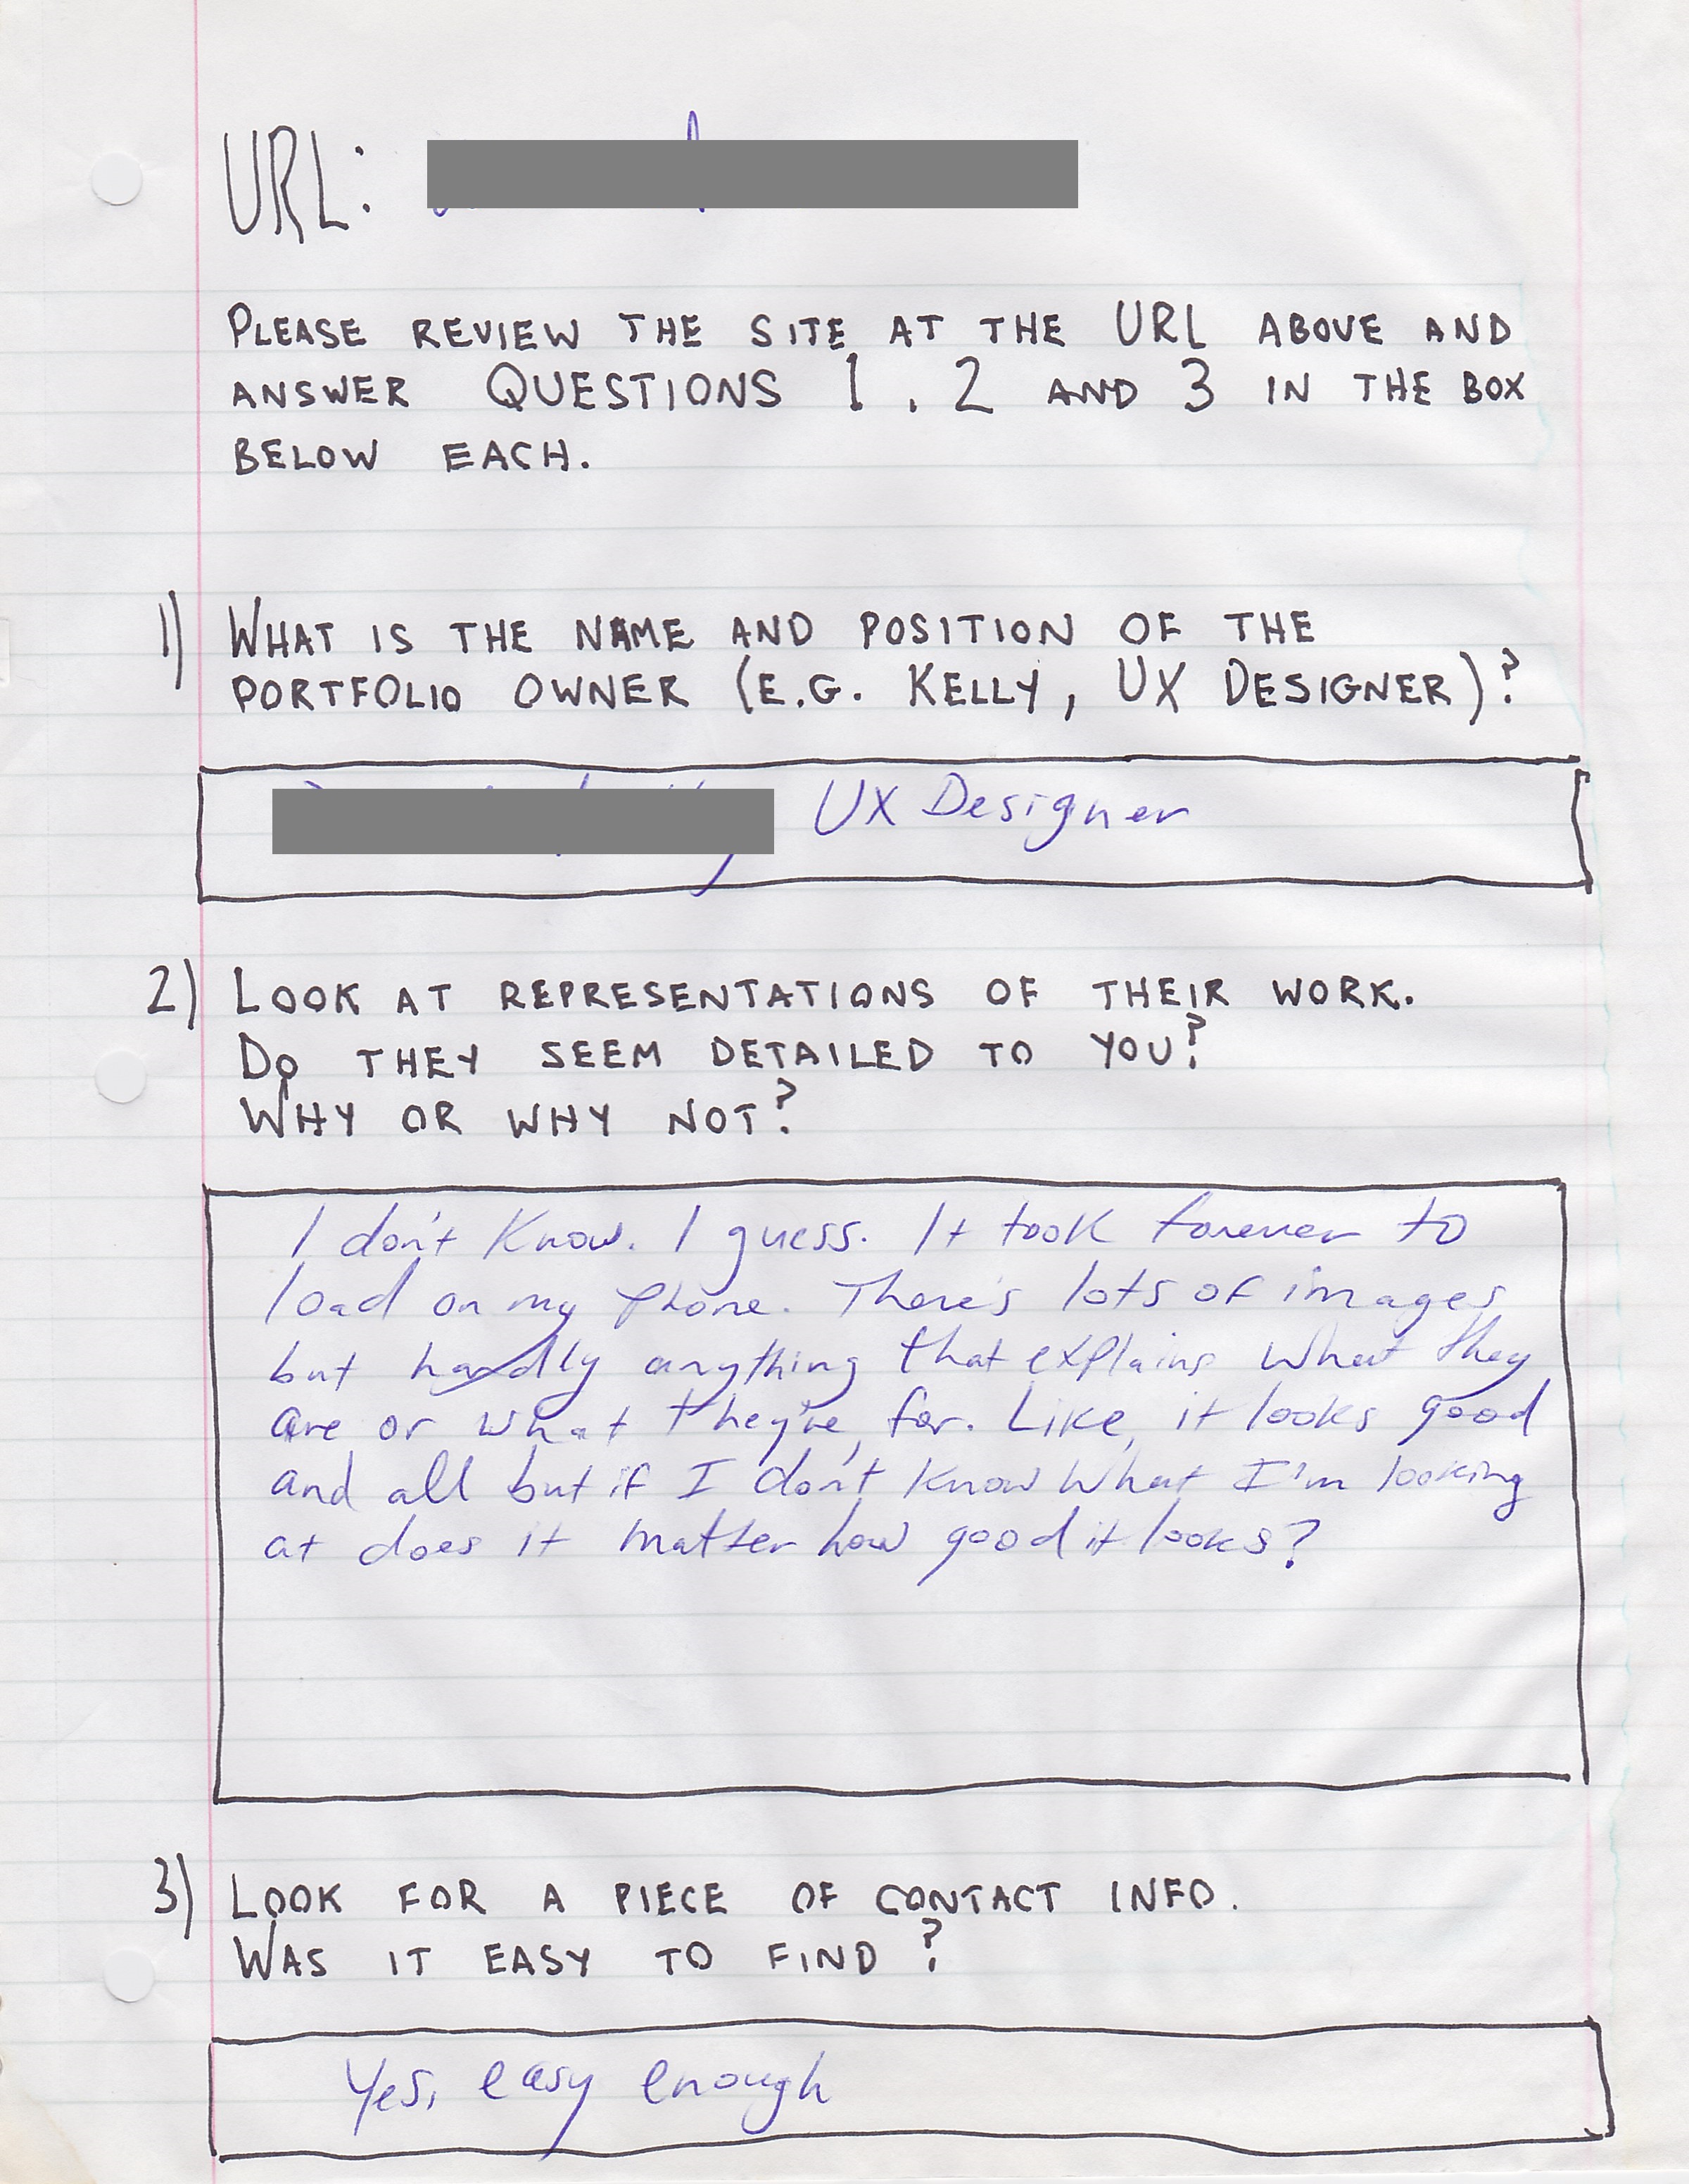 URL:
PLEASE REVIEW THE SITE AT THE URL ABOVE AND
ANSWER QUESTIONS 1, 2 AND 3 IN THE BOX
BELOW EACH.
1) WHAT IS THE NAME AND POSITION OF THE
PORTFOLIO OWNER (E.G. KELLY, UX DESIGNER)?
UX Designer
2) LOOK AT REPRESENTATIONS OF THEIR WORK.
DO THEY SEEM DETAILED TO YOU?
WHY OR WHY NOT?
I don't know. I guess. It took forever to
load on my phone. There's lots of images
but hardly anything that explains what they
are or what they're for. Like, it looks good
and all but if I don't know what I'm looking
at does it matter how good it looks?
3) LOOK FOR A PIECE OF CONTACT INFO.
WAS IT EASY TO FIND?
Yes, easy enough